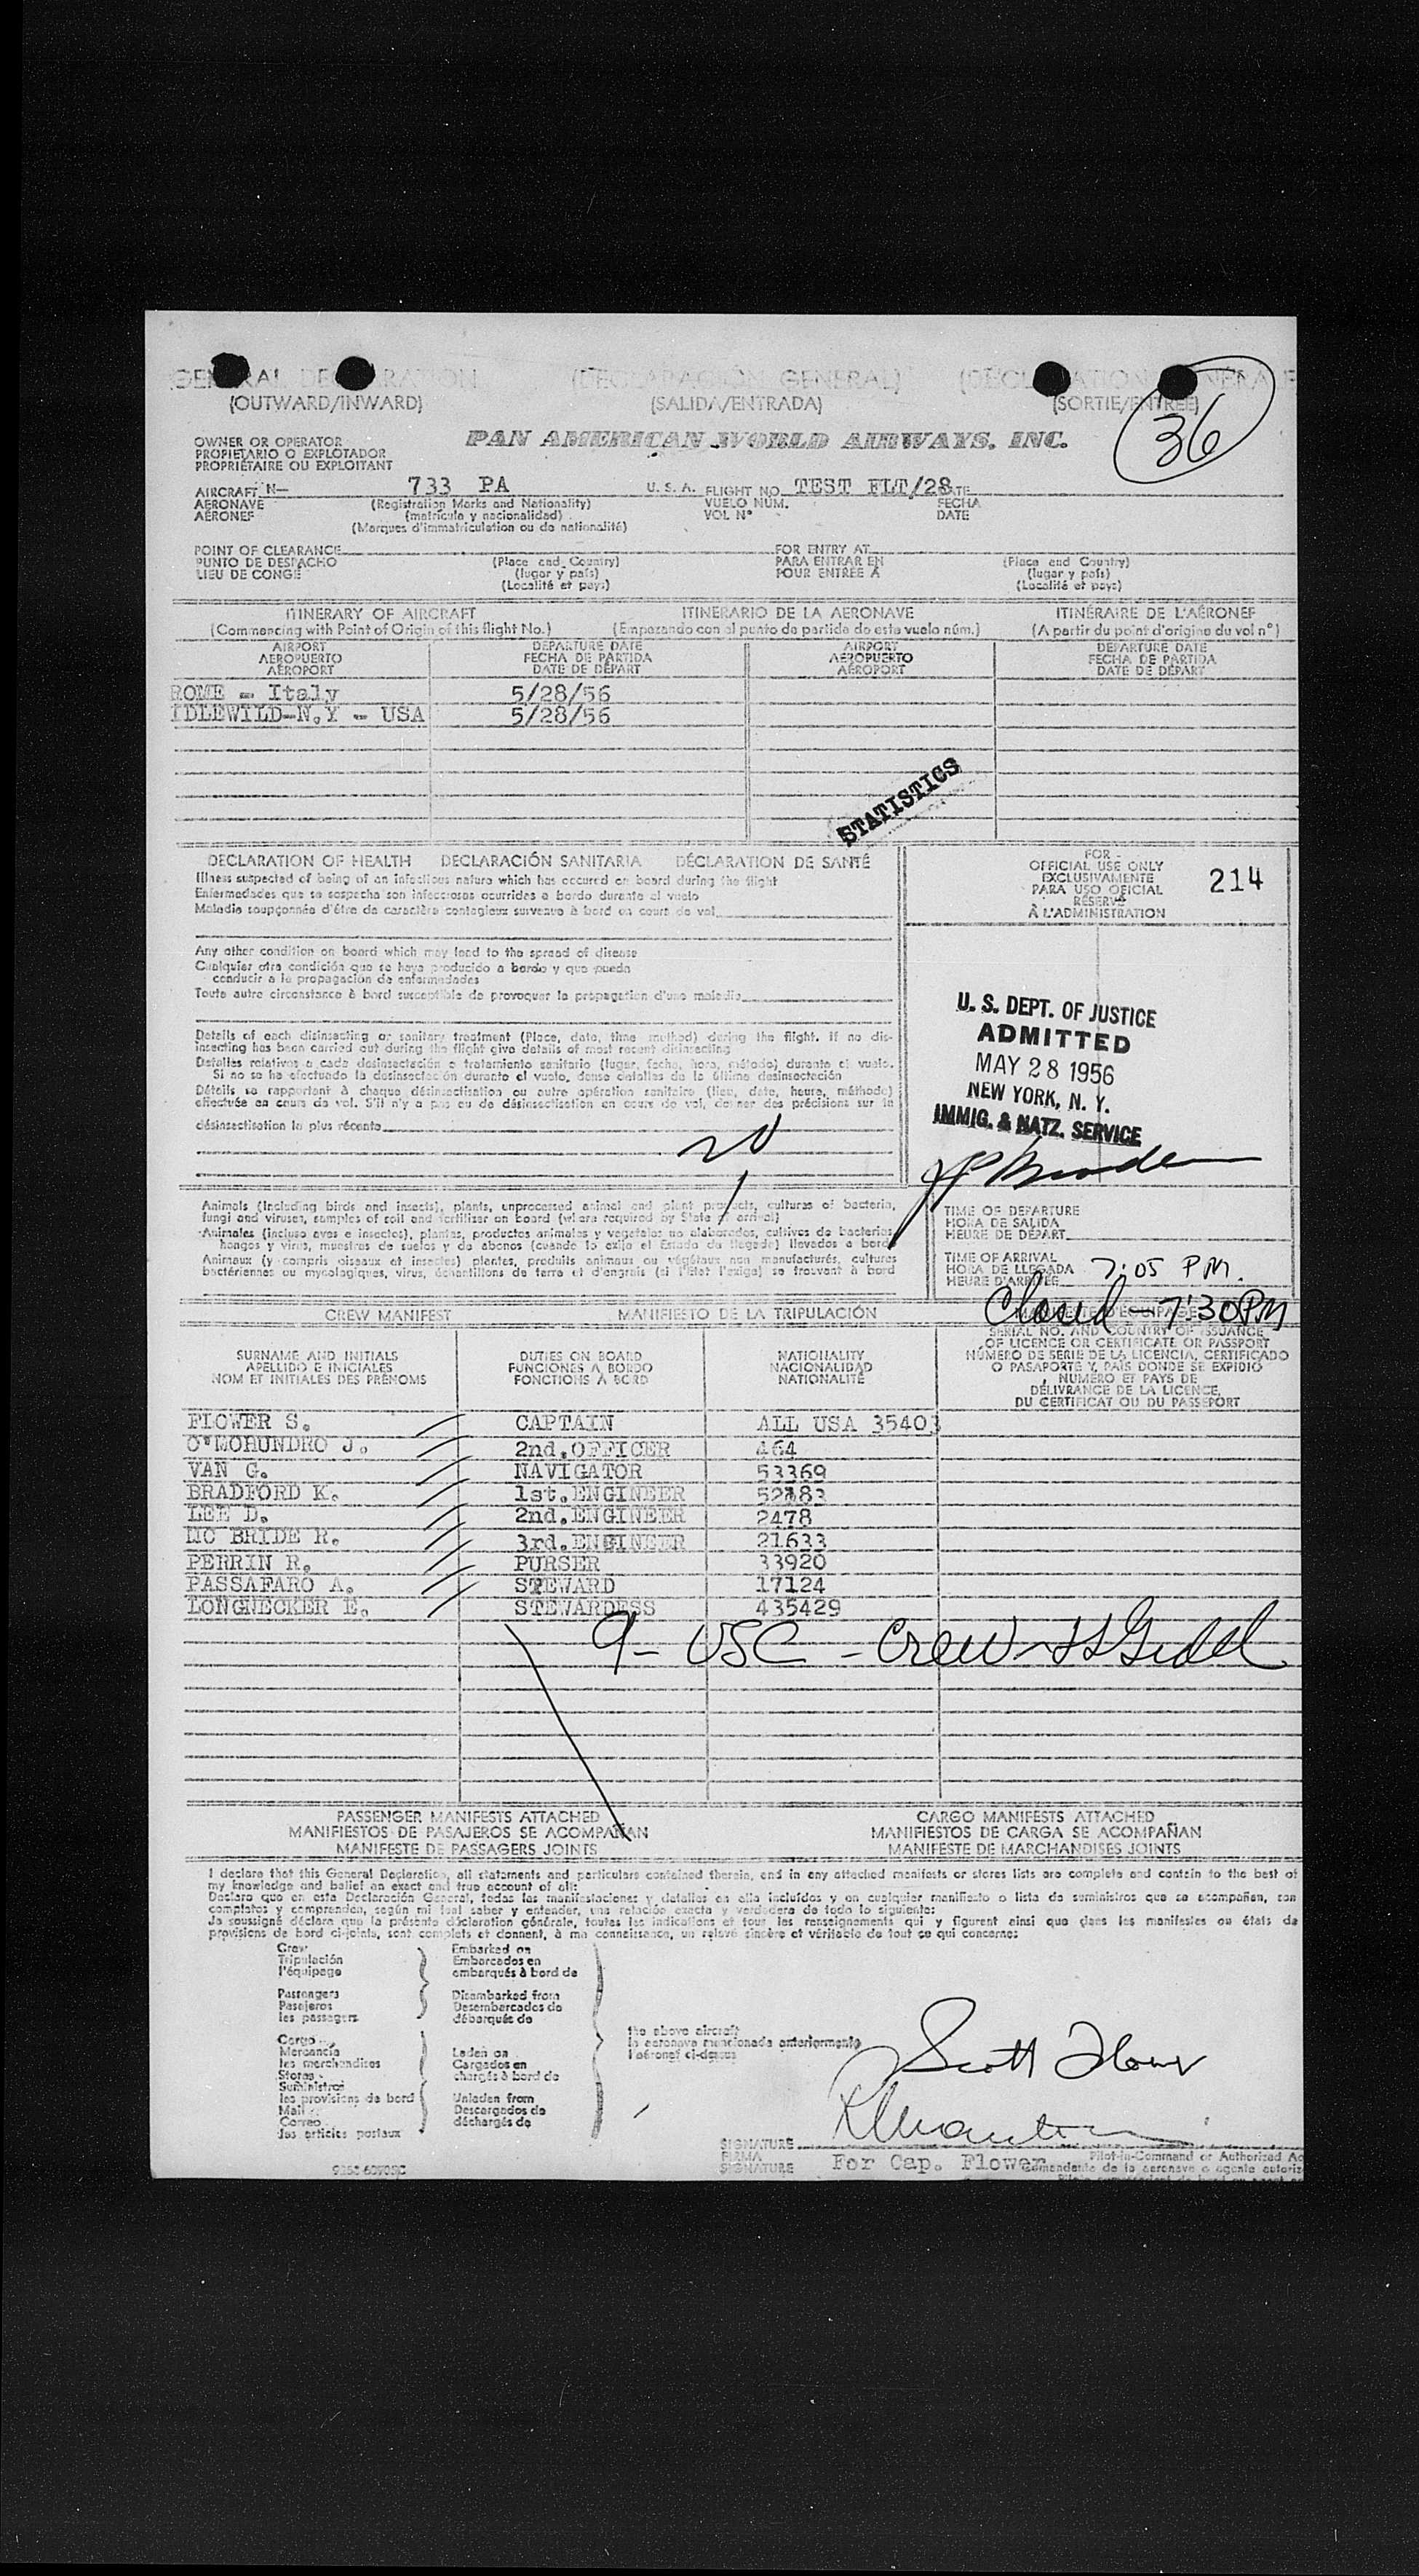 GENERAL DECLARATION (DECLARACIÓN GENERAL) (DÉCLARATION GÉNÉRALE
(OUTWARD/INWARD) (SALIDA/ENTRADA) (SORTIE/ENTRÉE)
36
OWNER OR OPERATOR
PROPIETARIO O EXPLOTADOR
PROPRIÉTAIRE OU EXPLOITANT
PAN AMERICAN WORLD AIRWAYS, INC.
AIRCRAFT N— 733 PA U. S. A. FLIGHT NO. TEST FLT/28 DATE
AERONAVE (Registration Marks and Nationality) VUELO NÚM. FECHA
AÉRONEF (matrícula y nacionalidad) VOL Nº DATE
(Marques d'immatriculation ou de nationalité)
POINT OF CLEARANCE FOR ENTRY AT
PUNTO DE DESPACHO (Place and Country) PARA ENTRAR EN (Place and Country)
LIEU DE CONGÉ (lugar y país) POUR ENTRÉE À (lugar y país)
(Localité et pays) (Localité et pays)
ITINERARY OF AIRCRAFT ITINERARIO DE LA AERONAVE ITINÉRAIRE DE L'AÉRONEF
(Commencing with Point of Origin of this flight No.) (Empezando con el punto de partida de este vuelo núm.) (A partir du point d'origine du vol nº)
AIRPORT DEPARTURE DATE AIRPORT DEPARTURE DATE
AEROPUERTO FECHA DE PARTIDA AEROPUERTO FECHA DE PARTIDA
AÉROPORT DATE DE DÉPART AÉROPORT DATE DE DÉPART
ROME - Italy 5/28/56
IDLEWILD-N.Y - USA 5/28/56
STATISTICS
DECLARATION OF HEALTH DECLARACIÓN SANITARIA DÉCLARATION DE SANTÉ
Illness suspected of being of an infectious nature which has occured on board during the flight
Enfermedades que se sospecha son infecciosas ocurridas a bordo durante el vuelo
Maladie soupçonnée d'être de caractère contagieux survenue à bord en court de vol
FOR
OFFICIAL USE ONLY
EXCLUSIVAMENTE
PARA USO OFICIAL
RÉSERVÉ
À L'ADMINISTRATION
214
Any other condition on board which may lead to the spread of disease
Cualquier otra condición que se haya producido a bordo y que pueda
conducir a la propagación de enfermedades
Toute autre circonstance à bord susceptible de provoquer la propagation d'une maladie
Details of each disinsecting or sanitary treatment (Place, date, time method) during the flight. If no dis-
insecting has been carried out during the flight give details of most recent disinsecting
Detalles relativos a cada desinsectación o tratamiento sanitario (lugar, fecha, hora, método) durante el vuelo.
Si no se ha efectuado la desinsectación durante el vuelo, dense detalles de la última desinsectación
Détails se rapportant à chaque désinsectisation ou autre opération sanitaire (lieu, date, heure, méthode)
effectuée en cours de vol. S'il n'y a pas eu de désinsectisation en cours de vol, donner des précisions sur la
désinsectisation la plus récente
U. S. DEPT. OF JUSTICE
ADMITTED
MAY 28 1956
NEW YORK, N. Y.
IMMIG. & NATZ. SERVICE
Animals (including birds and insects), plants, unprocessed animal and plant products, cultures of bacteria,
fungi and viruses, samples of soil and fertiliser on board (where required by State of arrival)
Animales (incluso aves e insectos), plantas, productos animales y vegetales no elaborados, cultivos de bacterias
hongos y virus, muestras de suelos y de abonos (cuando lo exija el Estado de llegada) llevados a bordo
Animaux (y compris oiseaux et insectes) plantes, produits animaux ou végétaux non manufacturés, cultures
bactériennes ou mycologiques, virus, échantillons de terre et d'engrais (si l'État l'exige) se trouvant à bord
TIME OF DEPARTURE
HORA DE SALIDA
HEURE DE DÉPART
TIME OF ARRIVAL
HORA DE LLEGADA 7:05 PM.
HEURE D'ARRIVÉE
Closed - 7:30 PM
CREW MANIFEST MANIFIESTO DE LA TRIPULACIÓN MANIFESTE D'ÉQUIPAGE
SURNAME AND INITIALS
APELLIDO E INICIALES
NOM ET INITIALES DES PRÉNOMS
DUTIES ON BOARD
FUNCIONES A BORDO
FONCTIONS À BORD
NATIONALITY
NACIONALIDAD
NATIONALITÉ
SERIAL NO. AND COUNTRY OF ISSUANCE
OF LICENCE OR CERTIFICATE OR PASSPORT
NÚMERO DE SERIE DE LA LICENCIA, CERTIFICADO
O PASAPORTE Y PAÍS DONDE SE EXPIDIÓ
NUMÉRO ET PAYS DE
DÉLIVRANCE DE LA LICENCE,
DU CERTIFICAT OU DU PASSEPORT
FLOWER S. CAPTAIN ALL USA 35403
O'MOHUNDRO J. 2nd.OFFICER 464
VAN G. NAVIGATOR 53369
BRADFORD K. 1st.ENGINEER 52383
LEE D. 2nd.ENGINEER 2478
MC BRIDE R. 3rd.ENGINEER 21633
PERRIN R. PURSER 33920
PASSAFARO A. STEWARD 17124
LONGNECKER E. STEWARDESS 435429
9 - USC - Crew
PASSENGER MANIFESTS ATTACHED CARGO MANIFESTS ATTACHED
MANIFIESTOS DE PASAJEROS SE ACOMPAÑAN MANIFIESTOS DE CARGA SE ACOMPAÑAN
MANIFESTE DE PASSAGERS JOINTS MANIFESTE DE MARCHANDISES JOINTS
I declare that this General Declaration, all statements and particulars contained therein, and in any attached manifests or stores lists are complete and contain to the best of
my knowledge and belief an exact and true account of all:
Declaro que en esta Declaración General, todas las manifestaciones y detalles en ella incluídos y en cualquier manifiesto o lista de suministros que se acompañen, son
completos y comprenden, según mi leal saber y entender, una relación exacta y verdadera de todo lo siguiente:
Je soussigné déclare que la présente déclaration générale, toutes les indications et tous les renseignements qui y figurent ainsi que dans les manifestes ou états de
provisions de bord ci-joints, sont complets et donnent, à ma connaissance, un relevé sincère et véritable de tout ce qui concerne:
Crew Embarked on
Tripulación Embarcados en
l'équipage embarqués à bord de
Passengers Disembarked from
Pasajeros Desembarcados de
les passagers débarqués de
Cargo
Mercancía Laden on
les marchandises Cargados en
Stores chargés à bord de
Suministros
les provisions de bord Unladen from
Mail Descargados de
Correo déchargés de
les articles postaux
the above aircraft
la aeronave mencionada anteriormente
l'aéronef ci-dessus
Scott Flower
SIGNATURE
FIRMA
SIGNATURE
For Cap. Flower
Pilot-in-Command or Authorized Ag
Comandante de la aeronave o agente autoriz